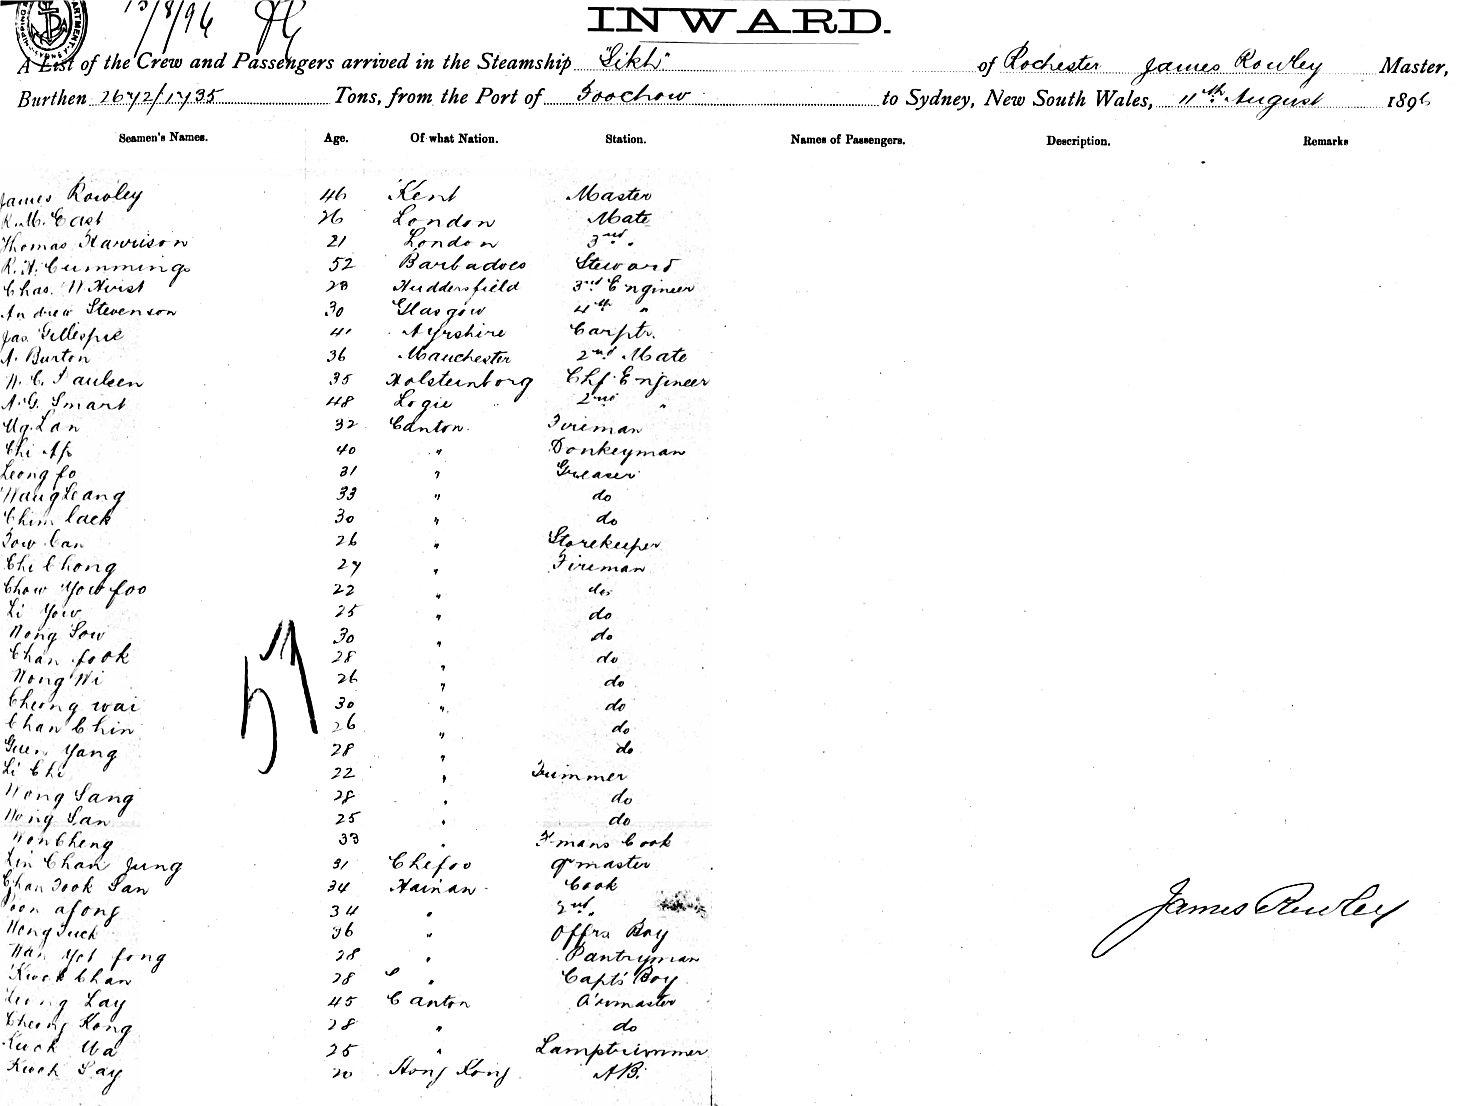 13/8/96
INWARD.
A List of the Crew and Passengers arrived in the Steamship "Sikh" of Rochester James Rowley Master,
Burthen 2672/1735 Tons, from the Port of Foochow to Sydney, New South Wales, 11th August 1896
Seamen's Names. Age. Of what Nation. Station. Names of Passengers. Description. Remarks
James Rowley 46 Kent Master
R.M. East 26 London Mate
Thomas Harrison 21 London 3rd "
R.H. Cummings 52 Barbadoes Steward
Chas. W Hirst 28 Huddersfield 3rd Engineer
Andrew Stevenson 30 Glasgow 4th "
Jas. Gillespie 41 Ayrshire Carptr.
A. Burton 36 Manchester 2nd Mate
N. C. Paulsen 35 Holsteinborg Chf. Engineer
A.G. Smart 48 Logie 2nd "
Ug. Lan 32 Canton Fireman
Chi Ap 40 " Donkeyman
Leong fo 31 " Greaser
Wang Leang 33 " do
Chim lack 30 " do
Tow Can 26 " Storekeeper
Chi Chong 27 " Fireman
Chow Yow foo 22 " do
Li Yow 25 " do
Wong Sow 30 " do
Chan fook 28 " do
Wong Wi 26 " do
Cheong wai 30 " do
Chan Chin 26 " do
Guen Yang 28 " do
57
Li Chi 22 " Trimmer
Wong Sang 28 " do
Wong San 25 " do
Won Cheng 33 " F-mans Cook
Lin Chan Jung 31 Chefoo Qrmaster
Chan Took San 34 Hainan Cook
Poon afong 34 " 2nd "
Wong Tuck 36 " Offrs Boy
Wan Yet fong 28 " Pantryman
Kwok Chan 28 " Capts Boy
Leung Lay 45 Canton Qrmaster
Cheong Kong 28 " do
Kuok Ua 25 " Lamptrimmer
Kwok Say 20 Hong Kong AB.
James Rowley